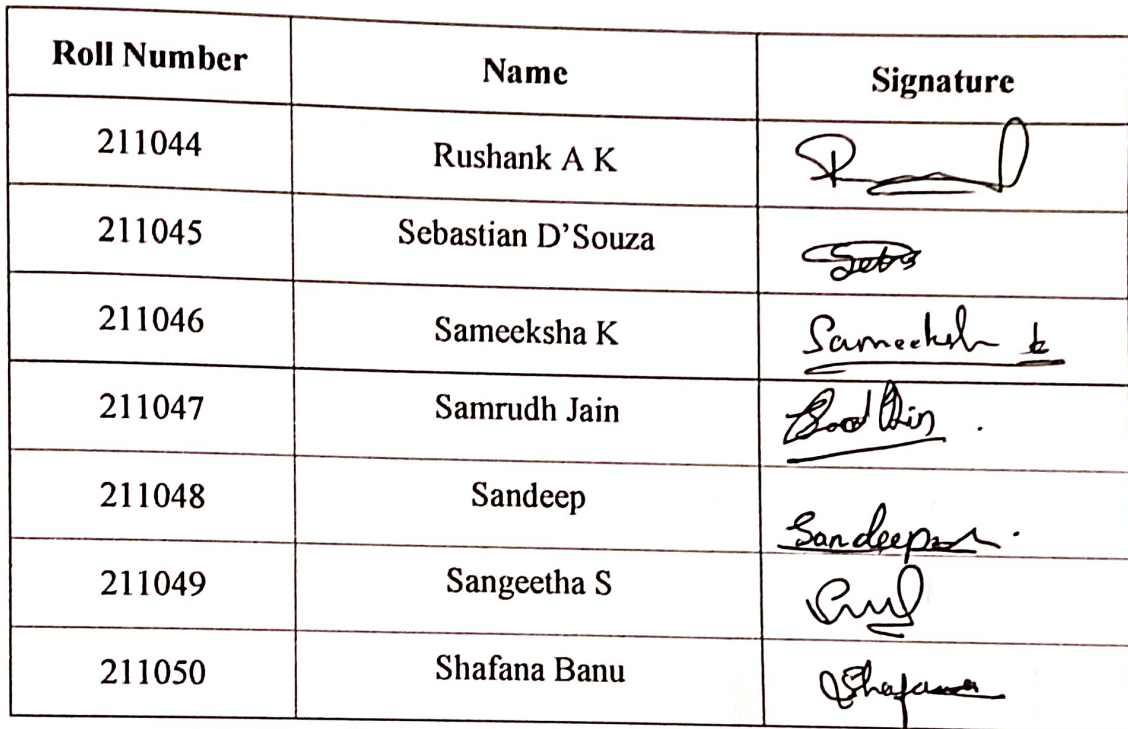 Roll Number Name Signature
211044 Rushank A K
211045 Sebastian D'Souza
211046 Sameeksha K Sameeksh k
211047 Samrudh Jain
211048 Sandeep Sandeep
211049 Sangeetha S
211050 Shafana Banu Shafana